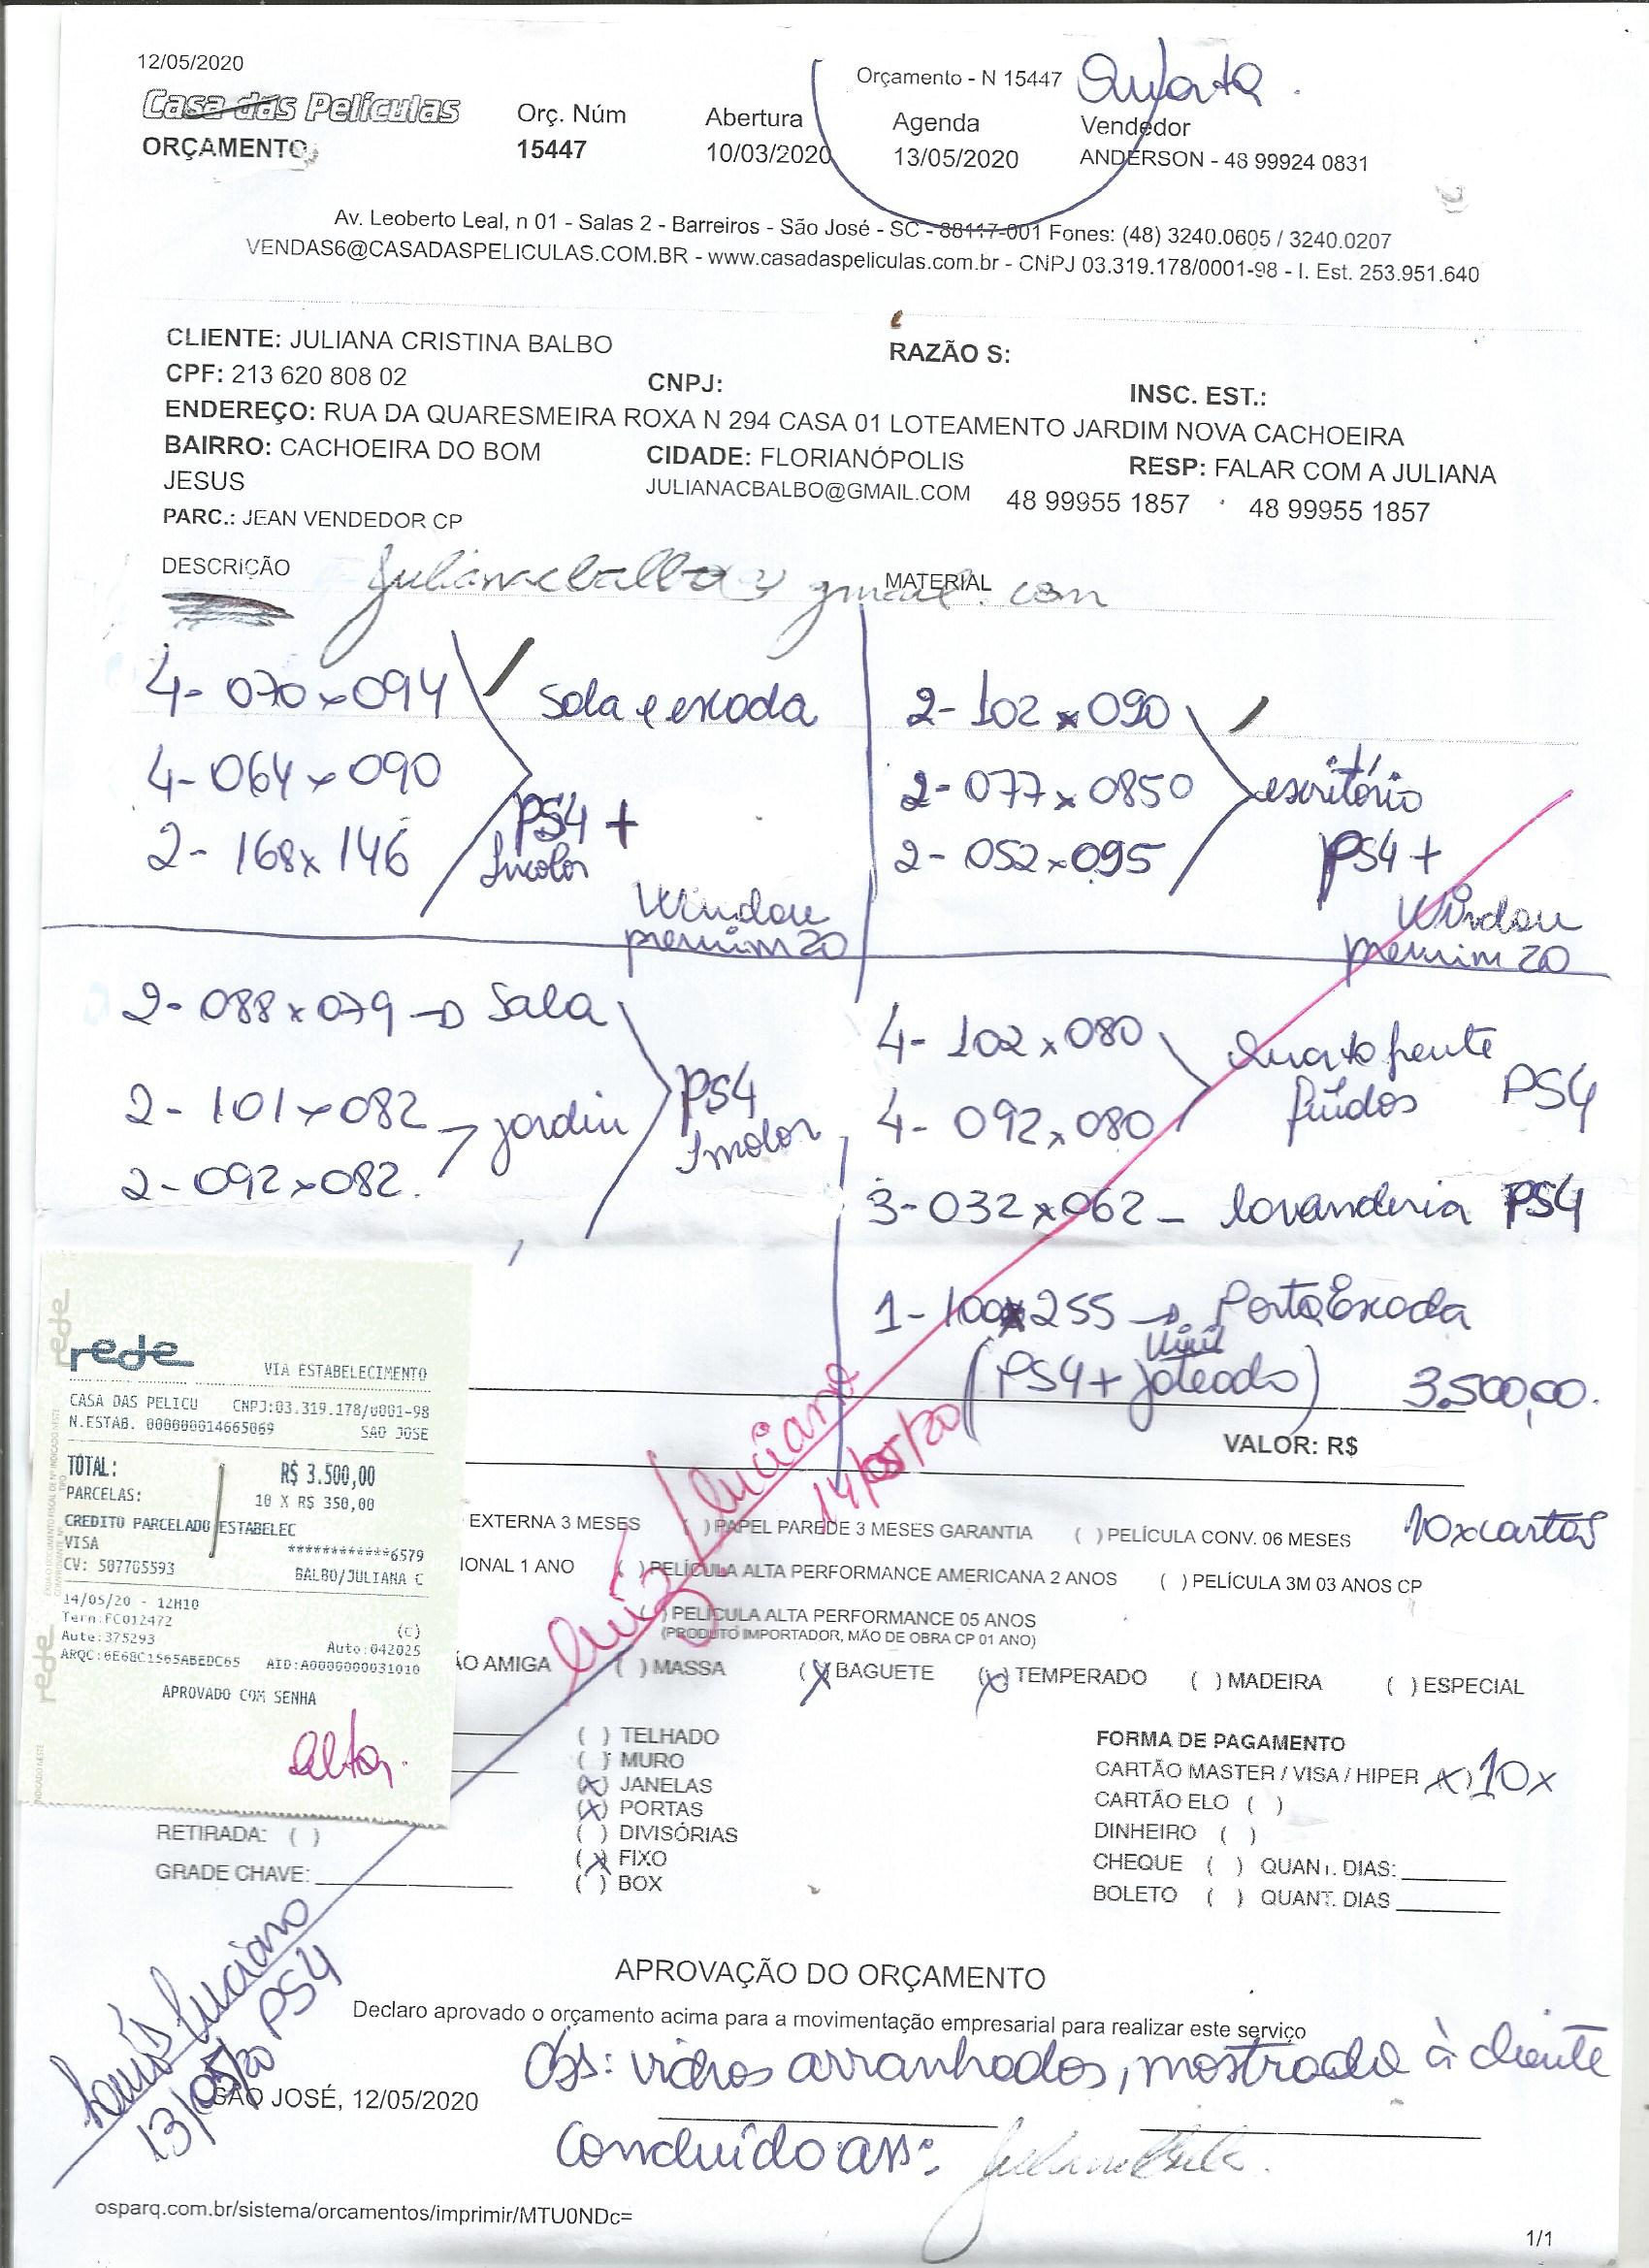 12/05/2020
Orçamento - N 15447 Quarta.
Casa das Películas
ORÇAMENTO
Orç. Núm
15447
Abertura
10/03/2020
Agenda
13/05/2020
Vendedor
ANDERSON - 48 99924 0831
Av. Leoberto Leal, n 01 - Salas 2 - Barreiros - São José - SC - 88117-001 Fones: (48) 3240.0605 / 3240.0207
VENDAS6@CASADASPELICULAS.COM.BR - www.casadaspeliculas.com.br - CNPJ 03.319.178/0001-98 - I. Est. 253.951.640
CLIENTE: JULIANA CRISTINA BALBO
RAZÃO S:
CPF: 213 620 808 02
CNPJ:
INSC. EST.:
ENDEREÇO: RUA DA QUARESMEIRA ROXA N 294 CASA 01 LOTEAMENTO JARDIM NOVA CACHOEIRA
BAIRRO: CACHOEIRA DO BOM
JESUS
CIDADE: FLORIANÓPOLIS
RESP: FALAR COM A JULIANA
JULIANACBALBO@GMAIL.COM 48 99955 1857 48 99955 1857
PARC.: JEAN VENDEDOR CP
DESCRIÇÃO
MATERIAL
julianacbalbo@gmail.com
4- 070x094
4- 064x090
2- 168x146
Sala e escada
PS4 +
Incolor
Window
premium 20
2- 102x090
2- 077x0850
2- 052x095
escritório
PS4 +
Window
premium 20
2- 088x079 → Sala
2- 101x082
2- 092x082.
jardin
PS4
Incolor
4- 102x080
4- 092x080
Quarto frente
fundos
PS4
3- 032x062 - lavanderia PS4
1- 100x255 → Porta Escada
(PS4 + Vinil jateado) 3.500,00.
VALOR: R$
rede
VIA ESTABELECIMENTO
CASA DAS PELICU CNPJ:03.319.178/0001-98
N.ESTAB. 000000014665069 SAO JOSE
TOTAL: R$ 3.500,00
PARCELAS: 10 X R$ 350,00
CREDITO PARCELADO ESTABELEC
VISA ************6579
CV: 507765593 BALBO/JULIANA C
14/05/20 - 12H10
Term:FC012472 (C)
Aute:375293 Auto:042025
ARQC:6E68C1565ABEDC65 AID:A0000000031010
APROVADO COM SENHA
Luís / Luciano
14/05/20
EXTERNA 3 MESES ( ) PAPEL PAREDE 3 MESES GARANTIA ( ) PELÍCULA CONV. 06 MESES
10x cartão
IONAL 1 ANO ( ) PELÍCULA ALTA PERFORMANCE AMERICANA 2 ANOS ( ) PELÍCULA 3M 03 ANOS CP
( ) PELÍCULA ALTA PERFORMANCE 05 ANOS
(PRODUTO IMPORTADOR, MÃO DE OBRA CP 01 ANO)
ÃO AMIGA ( ) MASSA (X) BAGUETE (X) TEMPERADO ( ) MADEIRA ( ) ESPECIAL
( ) TELHADO
( ) MURO
(X) JANELAS
(X) PORTAS
( ) DIVISÓRIAS
(X) FIXO
( ) BOX
FORMA DE PAGAMENTO
CARTÃO MASTER / VISA / HIPER (X) 10x
CARTÃO ELO ( )
DINHEIRO ( )
CHEQUE ( ) QUANT. DIAS:
BOLETO ( ) QUANT. DIAS
RETIRADA: ( )
GRADE CHAVE:
Luís Luciano
13/05/20 PS4
APROVAÇÃO DO ORÇAMENTO
Declaro aprovado o orçamento acima para a movimentação empresarial para realizar este serviço
Obs: vidros arranhados, mostrado à cliente
SÃO JOSÉ, 12/05/2020
Concluído ass:
osparq.com.br/sistema/orcamentos/imprimir/MTU0NDc=
1/1